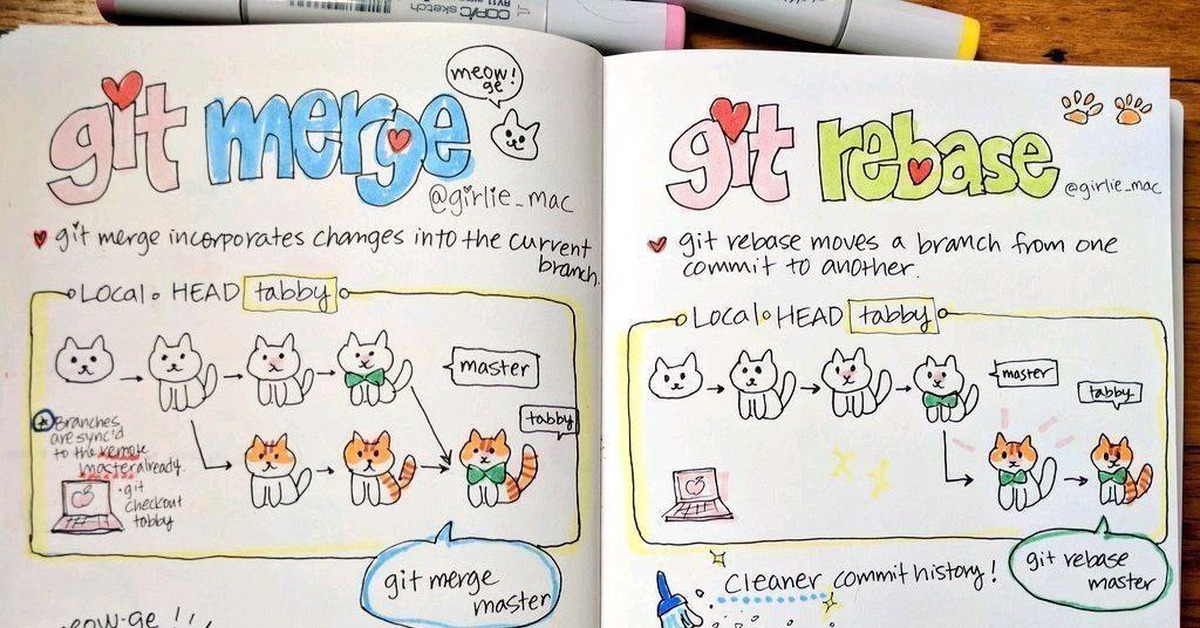 COPIC sketch
git merge
meow!
ge
@girlie_mac
git merge incorporates changes into the current
branch.
Local HEAD tabby
master
tabby
Branches
are sync'd
to the remote
master already.
git
checkout
tabby
git merge
master
eow-ge!!,
git rebase
@girlie_mac
git rebase moves a branch from one
commit to another.
Local HEAD tabby
master
tabby
git rebase
master
Cleaner commit history!